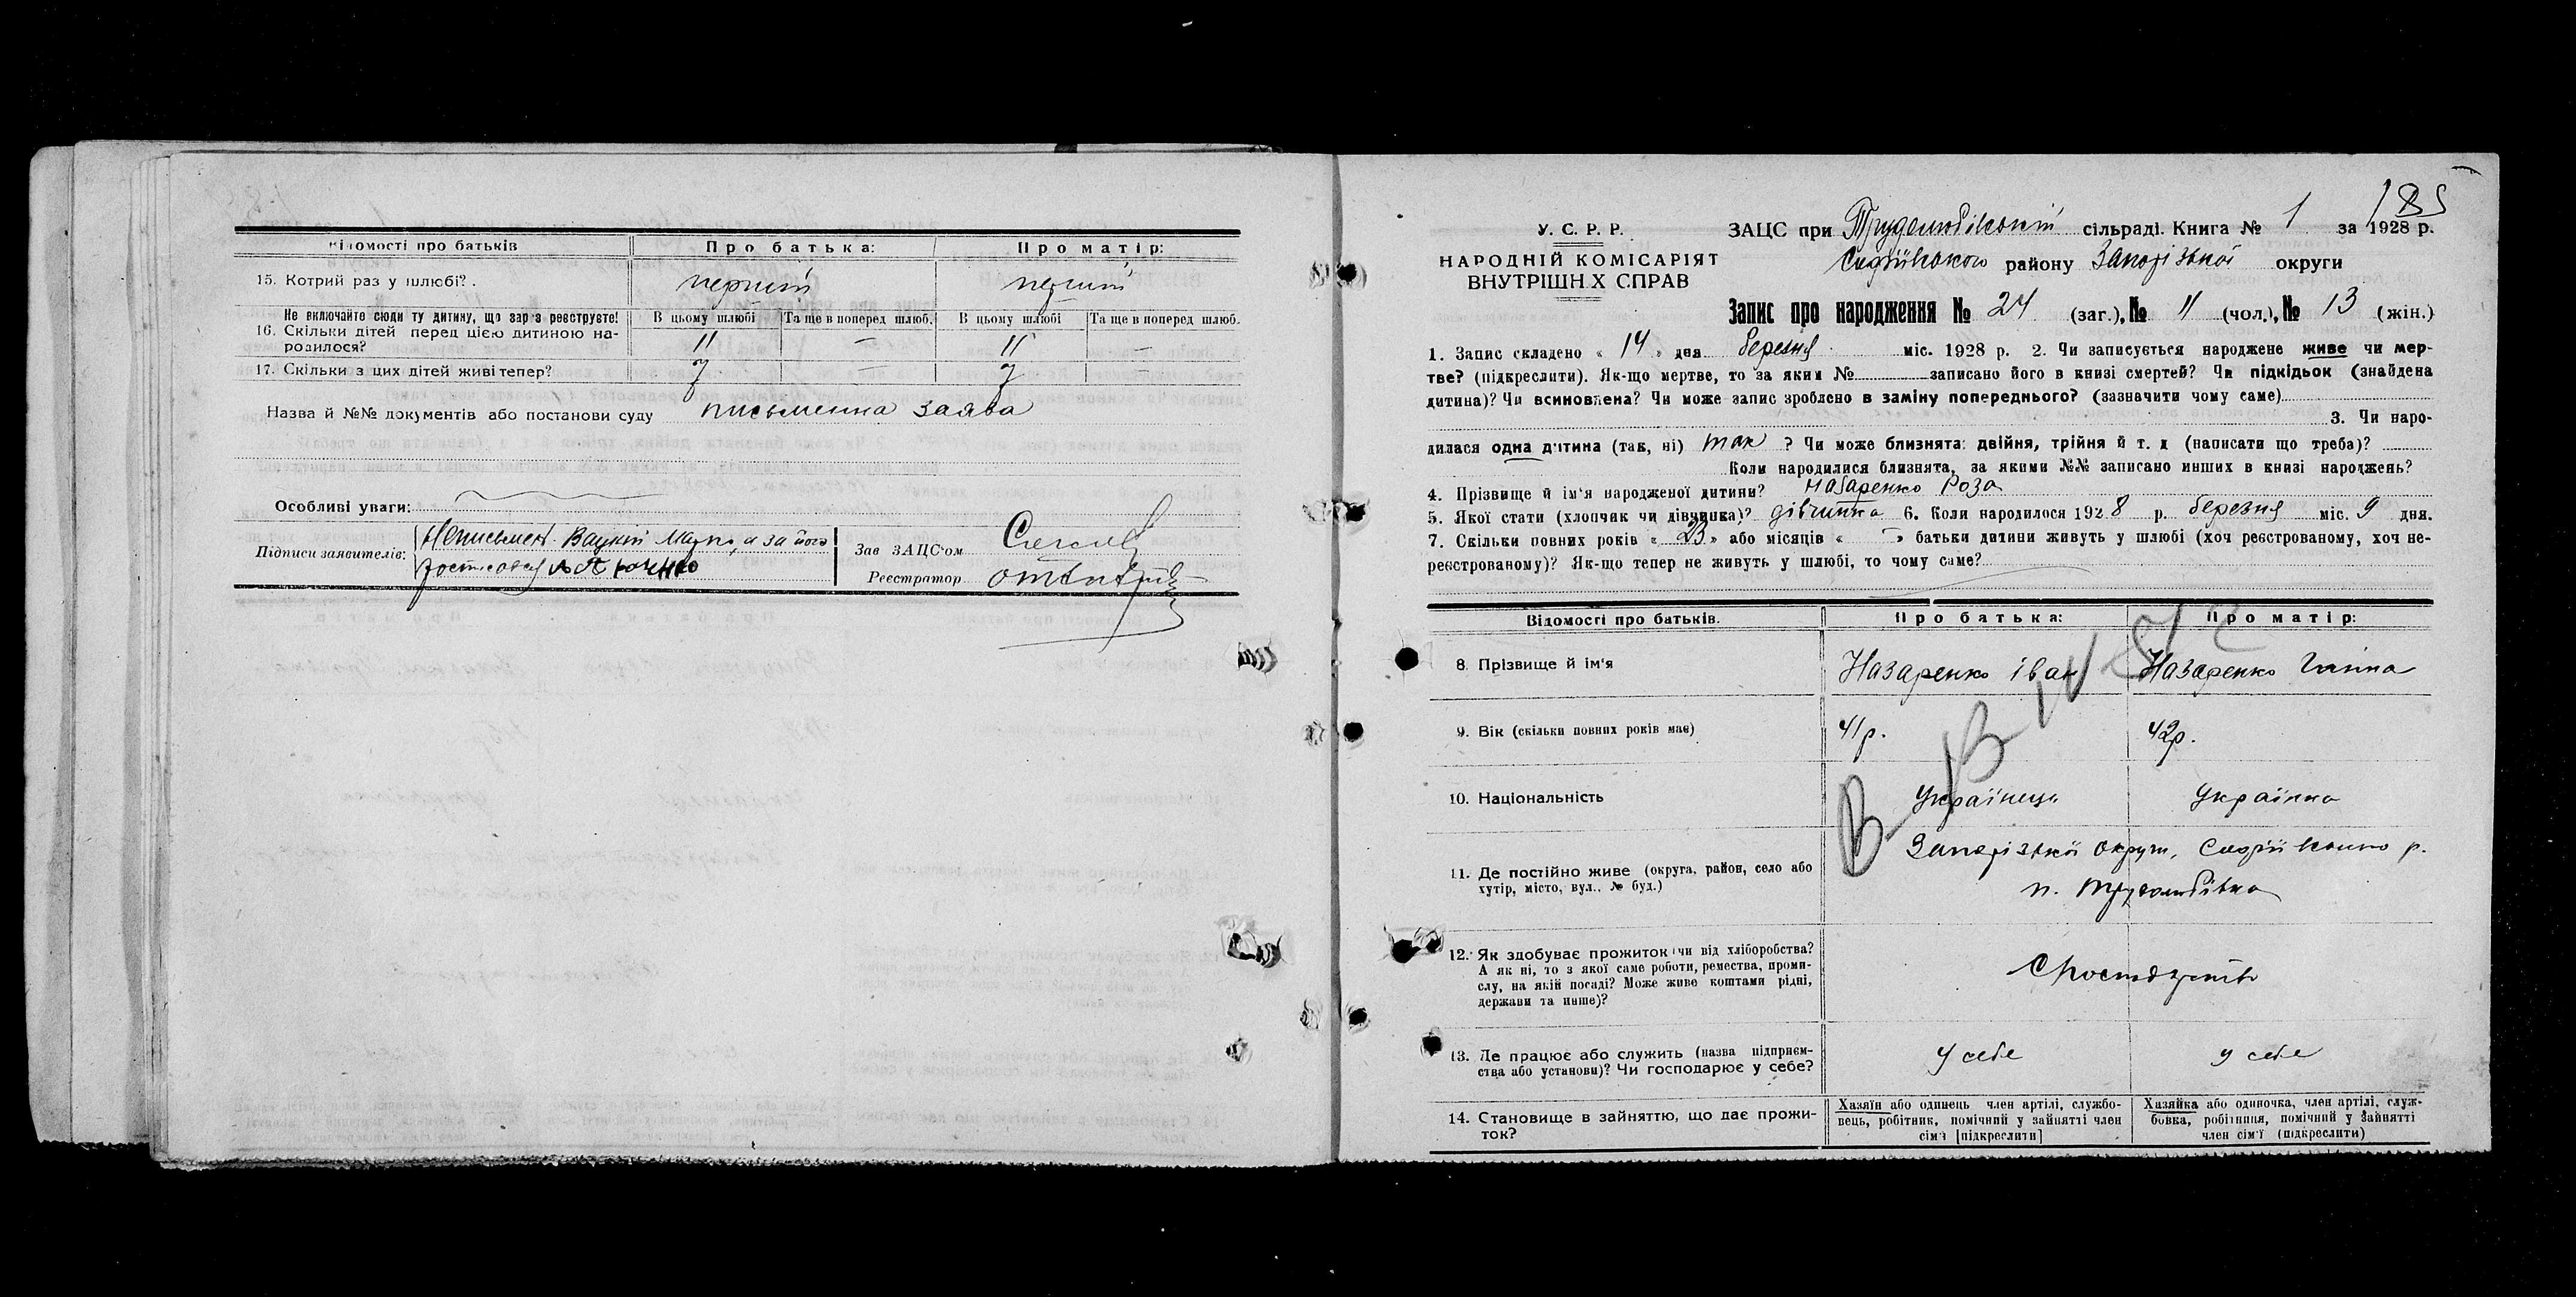 Відомості про батьків
Про батька:
Про матір:
15. Котрий раз у шлюбі?
перший
перший
Не включайте сюди ту дитину, що зараз реєструєте!
В цьому шлюбі
Та ще в поперед шлюб.
В цьому шлюбі
Та ще в поперед шлюб.
16. Скільки дітей перед цією дитиною на-
родилося?
11
—
11
—
17. Скільки з цих дітей живі тепер?
7
—
7
—
Назва й №№ документів або постанови суду письменна заява
Особливі уваги:
Підписи заявителів:
Неписьмен. Марко, а за його
Зав ЗАЦС'ом
Реєстратор
185
У. С. Р. Р.
НАРОДНІЙ КОМІСАРІЯТ
ВНУТРІШН.Х СПРАВ
ЗАЦС при Трудолюбівській сільраді. Книга № 1 за 1928 р.
Софіївського району Запорізької округи
Запис про народження № 24 (заг.), № 11 (чол.), № 13 (жін.)
1. Запис складено « 14 » дня березня міс. 1928 р. 2. Чи записується народжене живе чи мер-
тве? (підкреслити). Як-що мертве, то за яким № записано його в книзі смертей? Чи підкідьок (знайдена
дитина)? Чи всиновлена? Чи може запис зроблено в заміну попереднього? (зазначити чому саме)
3. Чи наро-
дилася одна дитина (так, ні) так ? Чи може близнята: двійня, трійня й т. д (написати що треба)?
Коли народилися близнята, за якими №№ записано инших в книзі народжень?
4. Прізвище й ім'я народженої дитини? Назаренко Роза
5. Якої статі (хлопчик чи дівчинка)? дівчинка 6. Коли народилося 1928 р. березня міс. 9 дня.
7. Скільки повних років « 23 » або місяців « — » батьки дитини живуть у шлюбі (хоч реєстрованому, хоч не-
реєстрованому)? Як-що тепер не живуть у шлюбі, то чому саме?
Відомості про батьків.
Про батька:
Про матір:
8. Прізвище й ім'я
Назаренко Іван
Назаренко Ганна
9. Вік (скільки повних років має)
41 р.
42 р.
10. Національність
Українець
Українка
11. Де постійно живе (округа, район, село або
хутір, місто, вул., № буд.)
Запорізької округи, Софіївського р.
п. Трудолюбівка
12. Як здобуває прожиток (чи від хліборобства?
А як ні, то з якої саме роботи, ремества, проми-
слу, на якій посаді? Може живе коштами рідні,
держави та инше)?
13. Де працює або служить (назва підприєм-
ства або установи)? Чи господарює у себе?
У себе
у себе
14. Становище в зайняттю, що дає прожи-
ток?
Хазяїн або одинець член артілі, службо-
вець, робітник, помічний у зайнятті член
сім'ї [підкреслити]
Хазяйка або одиночка, член артілі, служ-
бовка, робітниця, помічний у зайнятті
член сім'ї (підкреслити)